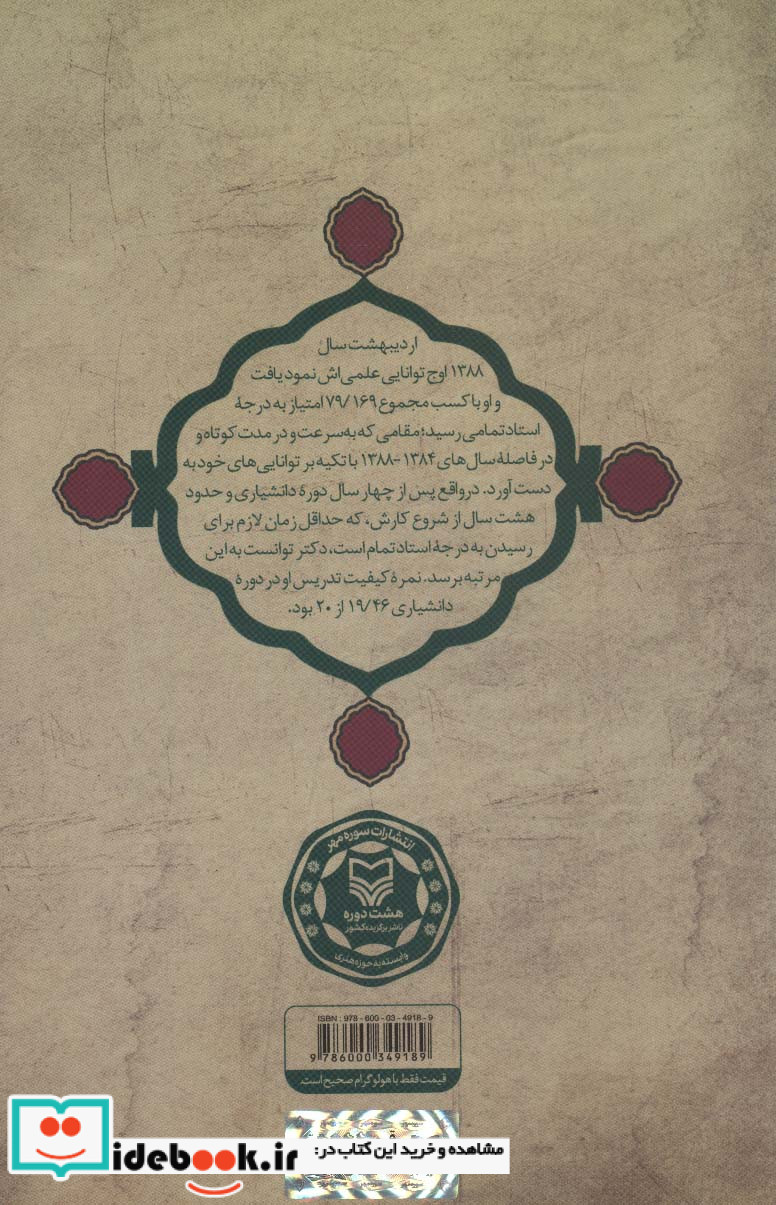 اردیبهشت سال
۱۳۸۸ اوج توانایی علمی‌اش نمود یافت
و او با کسب مجموع ۷۹/۱۶۹ امتیاز به درجهٔ
استاد تمامی رسید؛ مقامی که به سرعت و در مدت کوتاه و
در فاصلهٔ سال‌های ۱۳۸۴-۱۳۸۸ با تکیه بر توانایی‌های خود به
دست آورد. درواقع پس از چهار سال دورهٔ دانشیاری و حدود
هشت سال از شروع کارش، که حداقل زمان لازم برای
رسیدن به درجهٔ استاد تمام است، دکتر توانست به این
مرتبه برسد. نمرهٔ کیفیت تدریس او در دورهٔ
دانشیاری ۱۹/۴۶ از ۲۰ بود.
انتشارات سوره مهر
هشت دوره
ناشر برگزیده کشور
وابسته به حوزه هنری
ISBN : 978 - 600 - 03 - 4918 - 9
9 786000 349189
قیمت فقط با هولوگرام صحیح است.
مشاهده و خرید این کتاب در:
idebook.ir